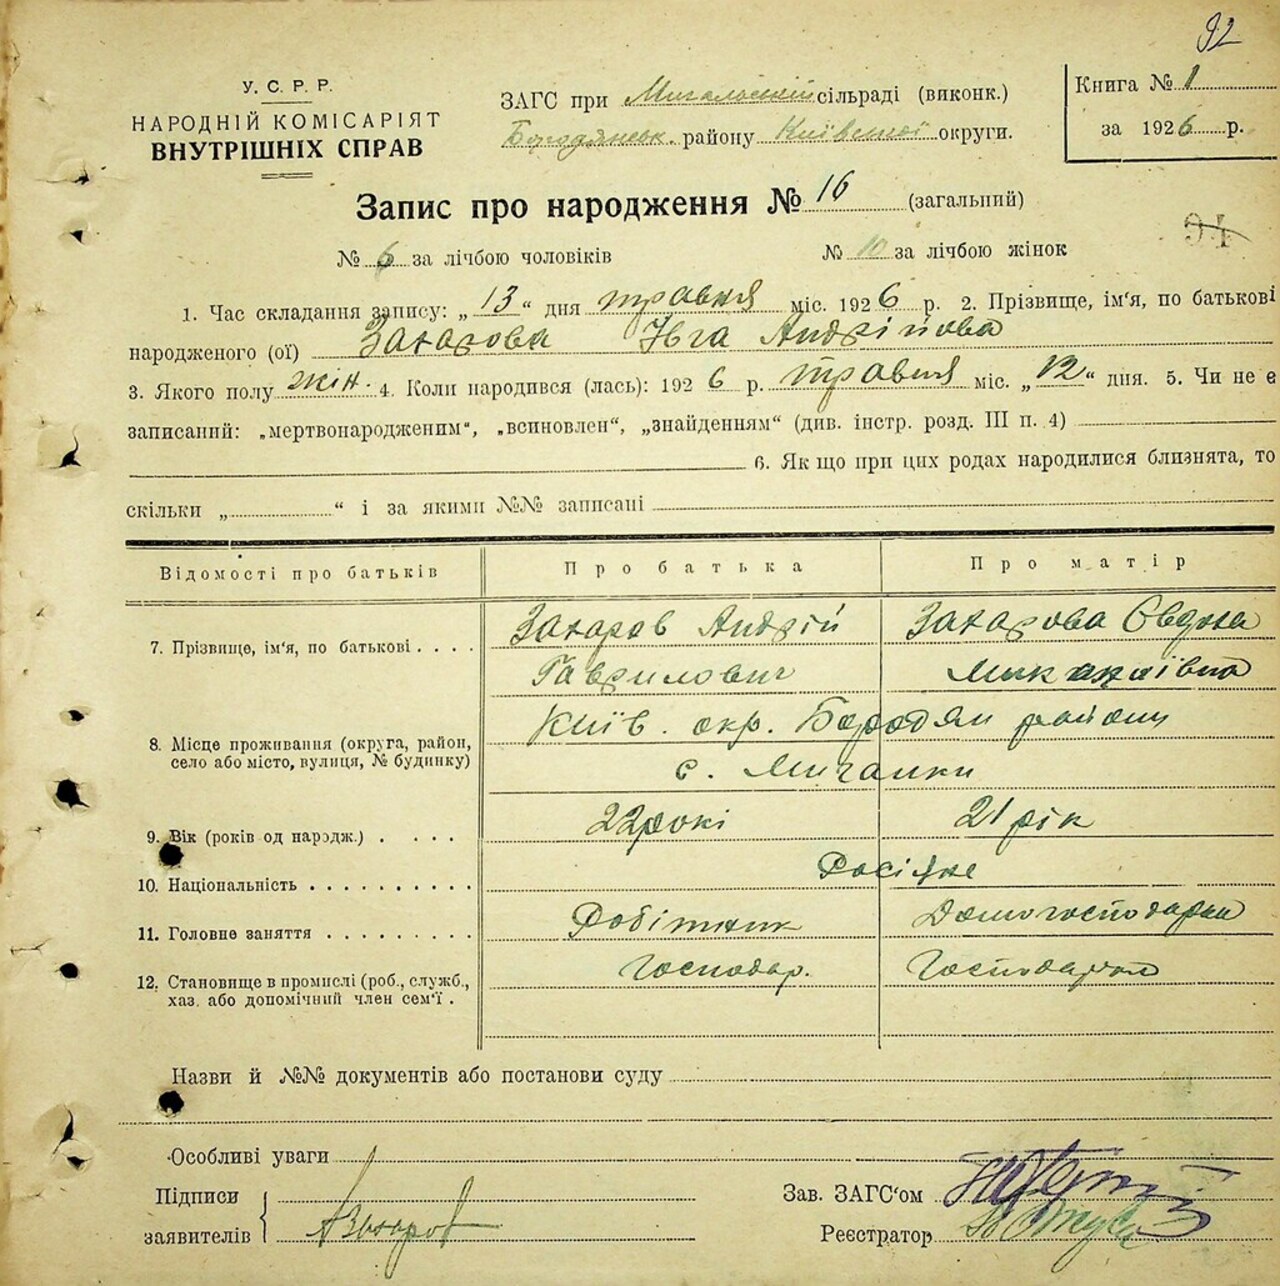 92
У. С. Р. Р.
НАРОДНІЙ КОМІСАРІЯТ
ВНУТРІШНІХ СПРАВ
ЗАГС при Мигальській сільраді (виконк.)
Бородянськ. району Київської округи.
Книга № 1
за 1926 р.
Запис про народження № 16 (загальний)
94
№ 6 за лічбою чоловіків № 10 за лічбою жінок
1. Час складання запису: „13“ дня травня міс. 1926 р. 2. Прізвище, ім'я, по батькові
народженого (ої) Захарова Ївга Андрійова
3. Якого полу жін. 4. Коли народився (лась): 1926 р. травня міс. „12“ дня. 5. Чи не є
записаний: „мертвонародженим“, „всиновлен“, „знайденням“ (див. інстр. розд. III п. 4)
6. Як що при цих родах народилися близнята, то
скільки „ “ і за якими №№ записані
Відомості про батьків Про батька Про матір
7. Прізвище, ім'я, по батькові . . . . Захаров Андрій Захарова Євдоха
Гаврилович
Київ. окр. Бородян району
8. Місце проживання (округа, район,
село або місто, вулиця, № будинку)
с. Мигалки
9. Вік (років од народж.) . . . . 22 рокі 21 рік
10. Національність . . . . . . . . . . Росіяне
11. Головне заняття . . . . . . . . . Робітник Домогосподарка
12. Становище в промислі (роб., служб.,
хаз. або допомічний член сем'ї . Господар.
Назви й №№ документів або постанови суду
Особливі уваги
Підписи
заявителів АЗахаров
Зав. ЗАГС'ом
Реєстратор